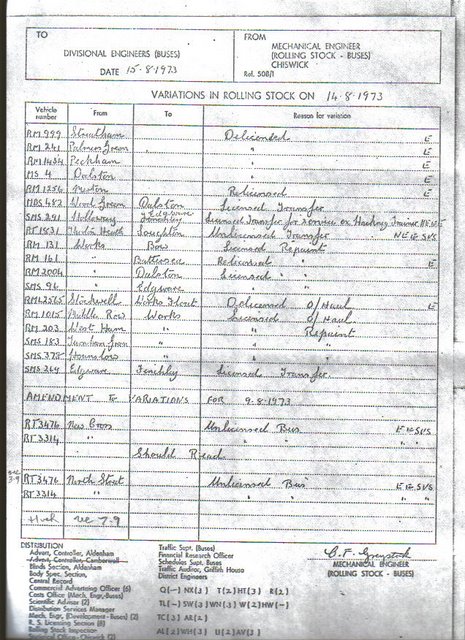 TO
DIVISIONAL ENGINEERS (BUSES)
DATE 15.8.1973
FROM
MECHANICAL ENGINEER
(ROLLING STOCK - BUSES)
CHISWICK
Ref. 508/1
VARIATIONS IN ROLLING STOCK ON 14.8.1973
Vehicle number From To Reason for variation
RM 999 Streatham Delicensed E
RM 241 Palmers Green " E
RM 1434 Peckham " E
MS 4 Dalston " E
RM 1256 Merton Relicensed E
MBS 482 Wood Green Dalston Licensed Transfer
SMS 291 Holloway Finchley Licensed Transfer for service
RT 1831 Unlicensed Transfer
RM 131 Works Bow Licensed Repaint
RM 161 " Battersea Relicensed " E
RM 2004 " Dalston Licensed "
SMS 96 " Edgware " "
RML 2565 Stockwell Works Float Delicensed O/Haul E
RM 1015 Middle Row Works Licensed O/Haul
RM 203 West Ham " " Repaint
SMS 183 Turnham Green " " "
SMS 378 Hounslow " " "
SMS 269 Edgware Finchley Licensed Transfer
AMENDMENT To VARIATIONS FOR 9.8.1973
RT 3476 New Cross Unlicensed Bus
RT 3314 " " "
Should Read
RT 3476 North Street Unlicensed Bus
RT 3314 " " "
7.9
DISTRIBUTION
Advert, Controller, Aldenham
Advert, Controller, Camberwell
Blinds Section, Aldenham
Body Spec, Section,
Central Record
Commercial Advertising Officer (6)
Costs Office (Mech, Engr-Buses)
Scientific Adviser (2)
Distribution Services Manager
Mech, Engr, (Development - Buses) (2)
R. S. Licensing Section (8)
Rolling Stock Inspection
Traffic Supt. (Buses)
Financial Research Officer
Schedules Supt. Buses
Traffic Auditor, Griffith House
District Engineers
Q(—) NK(3) T(2) HT(3) R(2)
TL(—) SW(3) WN(3) W(2) HW(—)
TC(3) AR(2)
AL(2) WH(3) U(2) AV(3)
MECHANICAL ENGINEER
(ROLLING STOCK - BUSES)